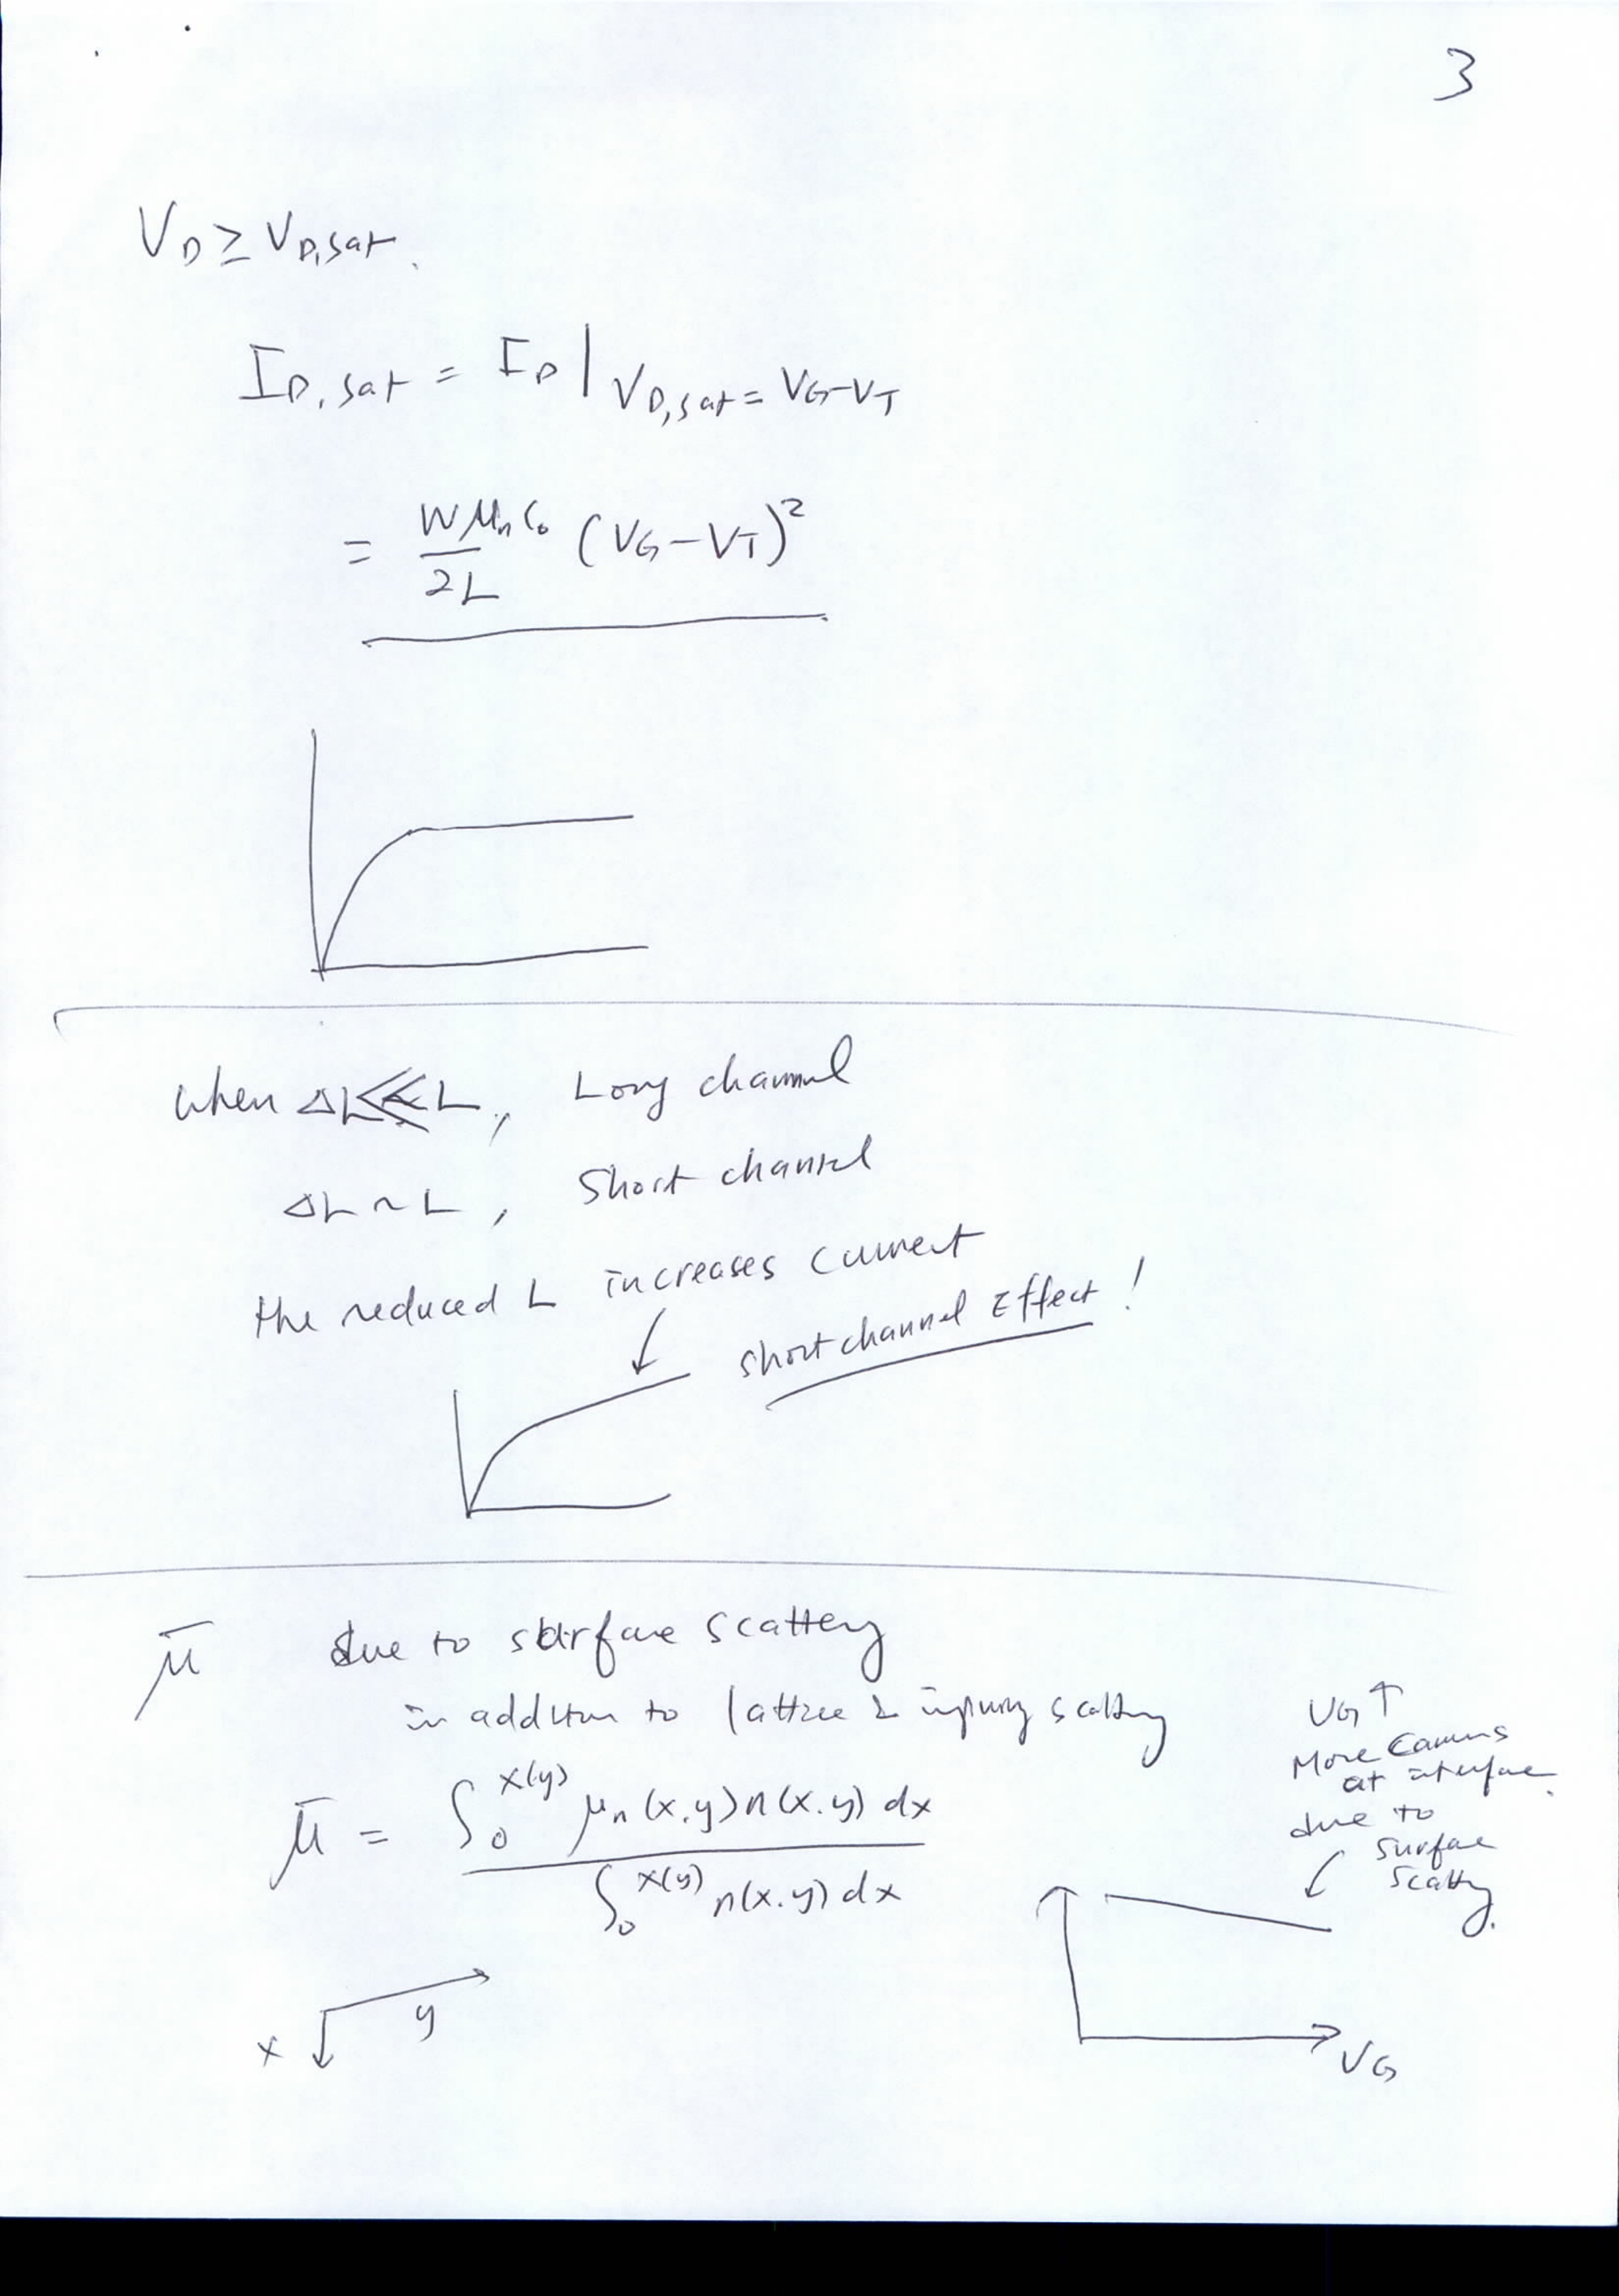 3
V_D ≥ V_D,sat.
I_D,sat = I_D | V_D,sat = V_G - V_T
= Wμ_nC_o / 2L (V_G - V_T)²
when ΔL ≪ L, Long channel
ΔL ~ L, Short channel
the reduced L increases current
short channel Effect !
μ̄ due to surface scattery
in addition to lattice & impurity scattery
μ̄ = ∫_0^x(y) μ_n(x.y) n(x.y) dx
∫_0^x(y) n(x.y) dx
x y
V_G ↑
More carriers
at interface.
due to
surface
scattery.
V_G